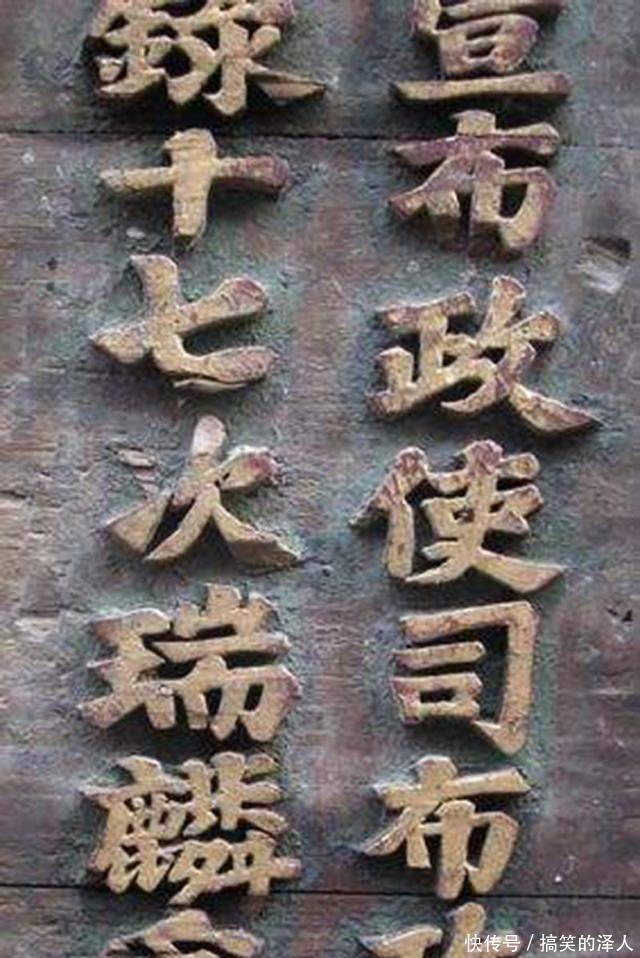 宣布政使司布
錄十七次瑞麟
快传号/搞笑的泽人